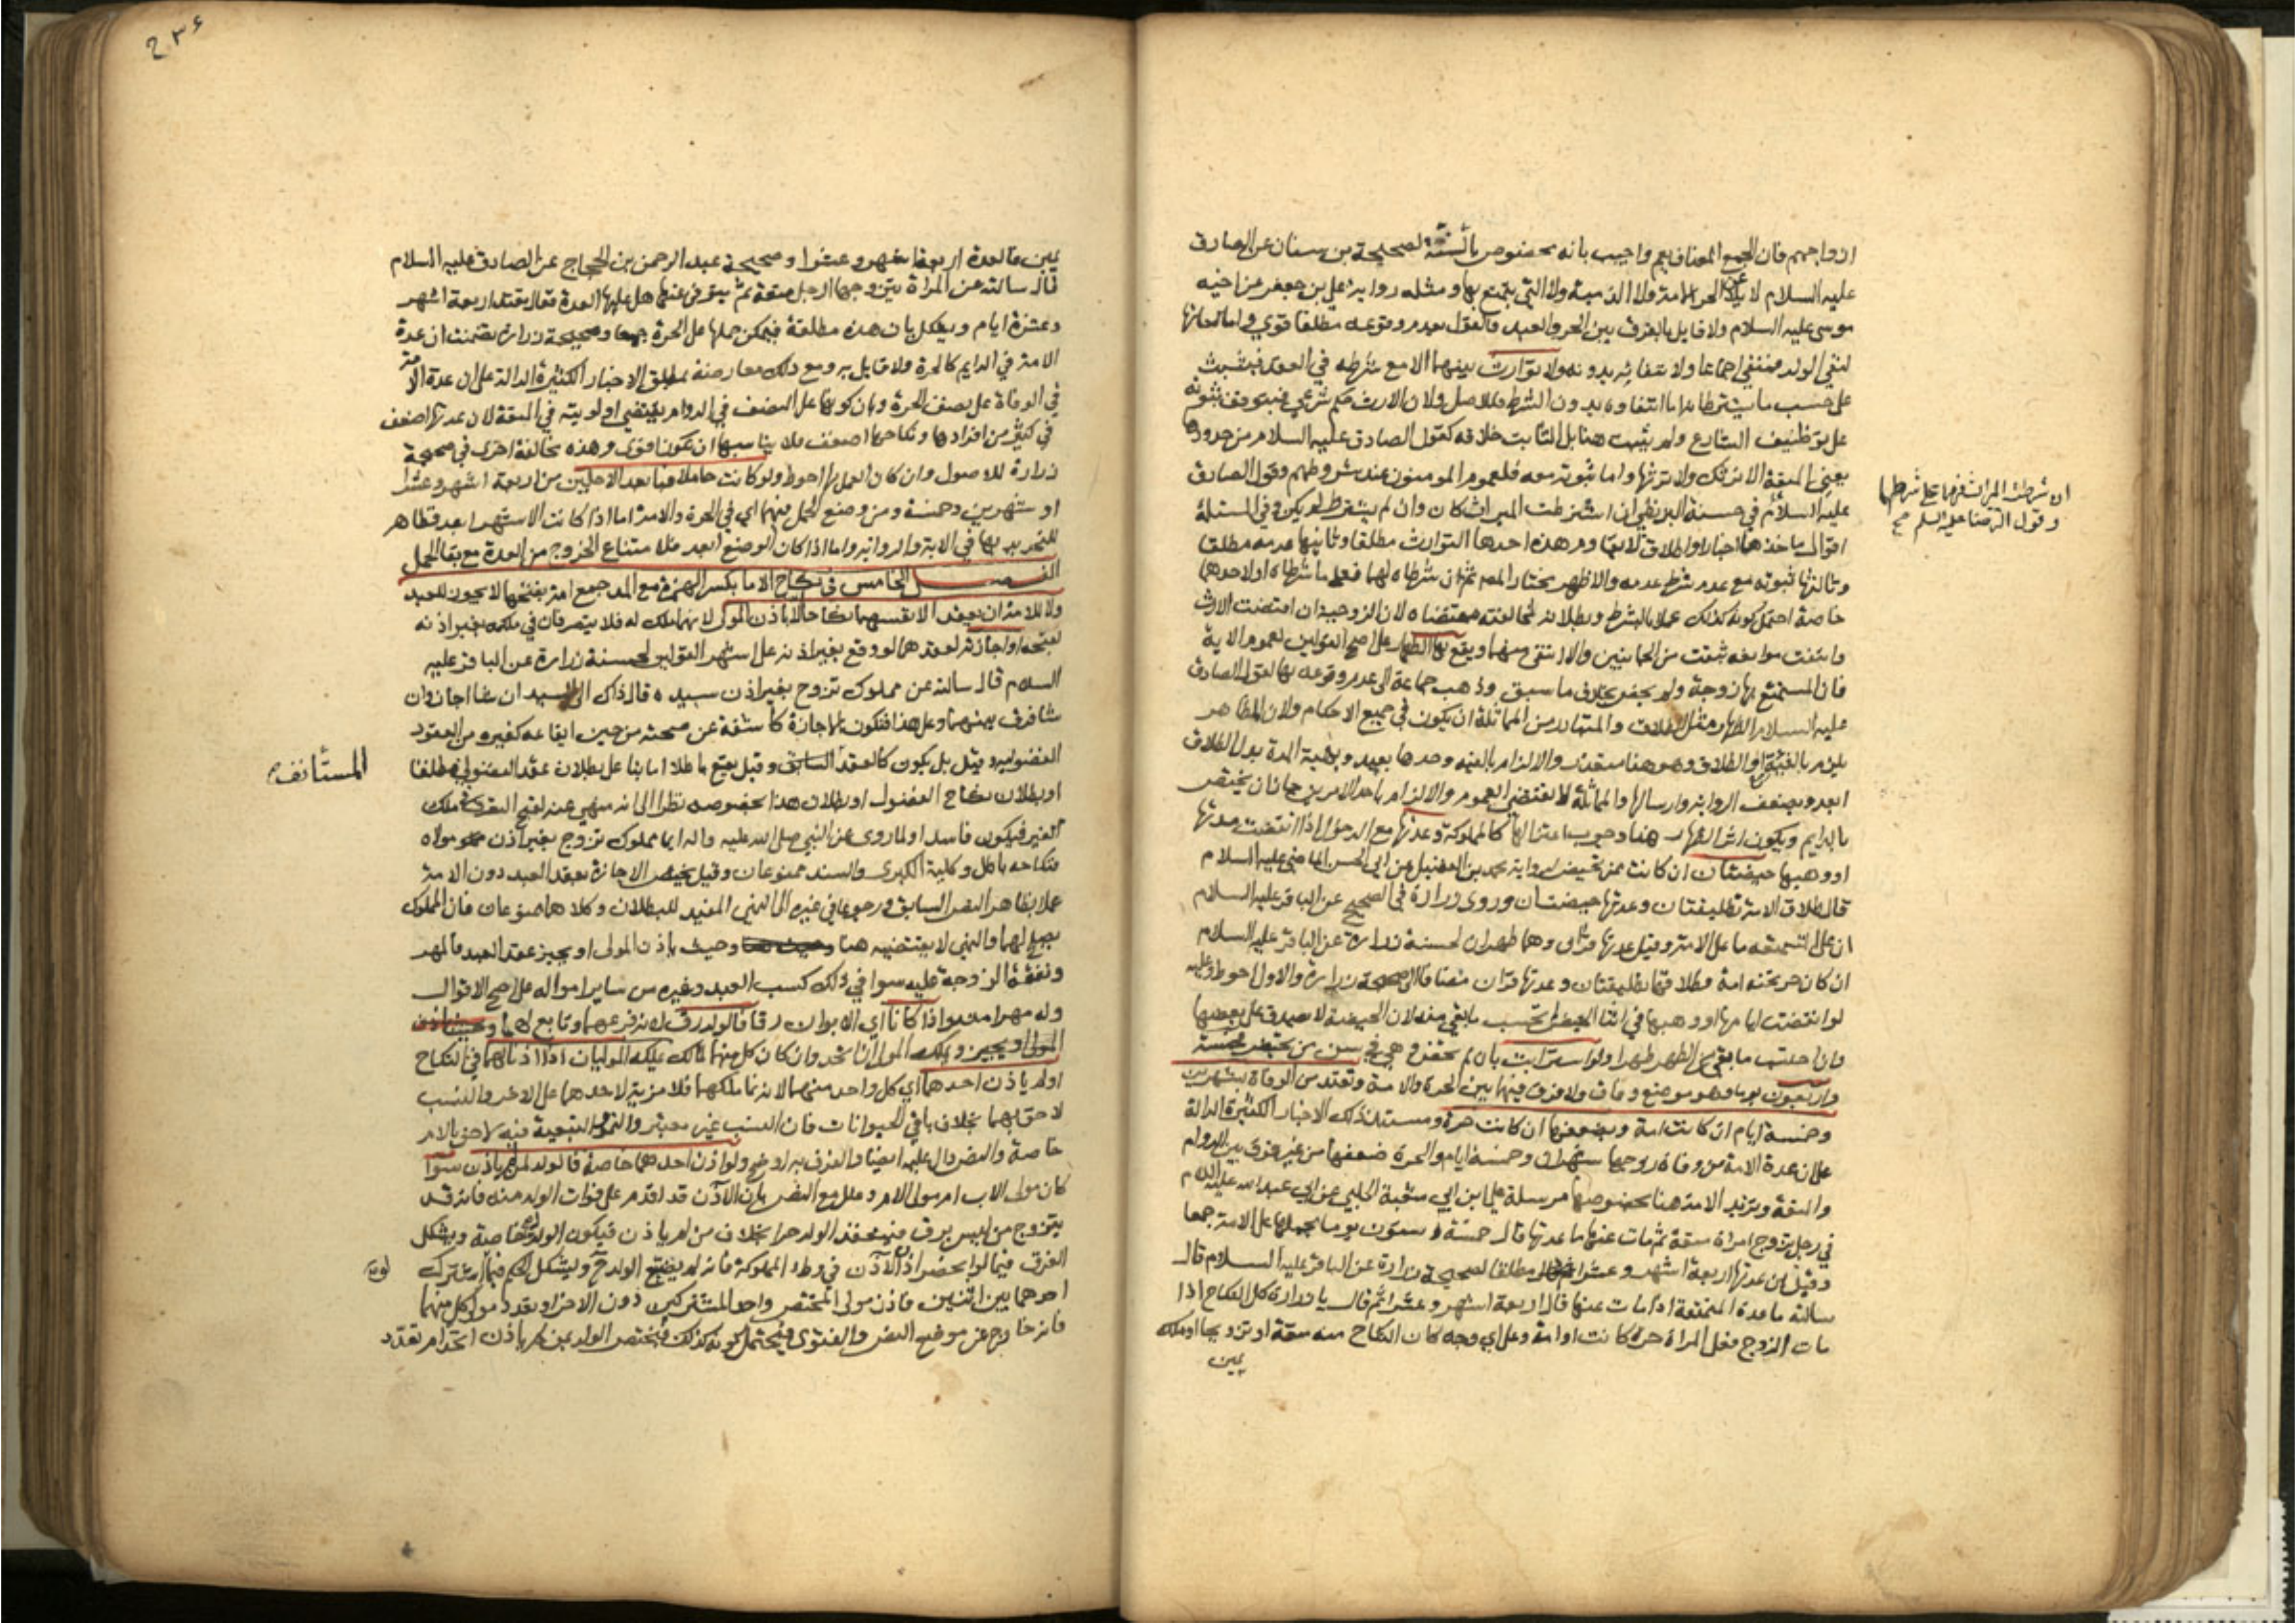 ازواجهم فان الجمع المضاف يعم واجيب بانه مخصوص بالسنة لصحيحة بن سنان عن الصادق
عليه السلام لا يلاعن الحر الامة ولا الذمية ولا التي يتمتع بها ومثله رواية علي بن جعفر عن اخيه
موسى عليه السلام ولا قايل بالفرق بين الحر والعبد فالقول بعدم وقوعه مطلقا قوي واما لعانها
لنفي الولد فمنتفي اجماعا ولانتفائه بدونه ولا توارث بينهما الا مع شرطه في العقد فيثبت
على حسب ما يشترطانه اما انتفاوه بدون الشرط فللاصل ولان الارث حكم شرعي فيتوقف ثبوته
على توظيف الشارع ولم يثبت هنا بل الثابت خلافه كقول الصادق عليه السلام من حدودها
يعني المتعة الا ترثك ولا ترثها واما ثبوته معه فلعموم المومنون عند شروطهم وقول الصادق
ان شرطت الميراث فهما على شرطهما
وقول الرضا عليه السلم صح
عليه السلام في حسنة البزنطي ان اشترطت الميراث كان وان لم يشترط لم يكن وفي المسئلة
اقوال ماخذها اخبار او اطلاق الايات ومن هذه احدها التوارث مطلقا وثانيها عدمه مطلقا
وثالثها ثبوته مع عدم شرط عدمه والاظهر مختار المص ثم ان شرطاه لهما فعلى ما شرطاه او لاحدهما
خاصة احتمل كونه كذلك عملا بالشرط وبطلانه لمخالفته مقتضاه لان الزوجية ان اقتضت الارث
وانتفت موانعه ثبتت من الجانبين والا انتفى منهما ويقع بها الظهار على اصح القولين لعموم الاية
فان المستمتع بها زوجة ولم يخص بخلاف ما سبق وذهب جماعة الى عدم وقوعه بها لقول الصادق
عليه السلام الظهار مثل الطلاق والمتبادر من المماثلة ان يكون في جميع الاحكام ولان المظاهر
يلزم بالفئة او الطلاق وهو هنا متعذر والالزام بالفئة وحدها بعيد وبهبة المدة بدل الطلاق
ابعد ويضعف الرواية وارسالها والمماثلة لا تقتضي العموم والالزام باحد الامرين جاز ان يختص
بالدايم ويكون اثر الظهار هنا وجوب اعتزالها كالمملوكة وعدتها مع الدخول اذا انقضت مدتها
او وهبها حيضتان ان كانت ممن تحيض لرواية محمد بن الفضيل عن ابي الحسن الماضي عليه السلام
قال طلاق الامة تطليقتان وعدتها حيضتان وروى زرارة في الصحيح عن الباقر عليه السلام
ان على المتمتعه ما على الامة وقيل عدتها قرآن وهما طهران لحسنة زرارة عن الباقر عليه السلام
ان كان حر تحته امة فطلاقها تطليقتان وعدتها قرآن مضافا الى صحيحة زرارة والاول احوط وعليه
لو انقضت ايامها او وهبها في اثنا الحيض لم تحتسب ما بقي منه لان الحيضة لا تصدق على بعضها
وان احتسب ما بقي من الطهر طهرا ولو استرابت بان لم تحض وهي في سن من تحيض فخمسة
واربعون يوما وهو موضع وفاق ولا فرق فيهما بين الحرة والامة وتعتد من الوفاة بشهرين
وخمسة ايام ان كانت امة وبضعفها ان كانت حرة ومستند ذلك الاخبار الكثيرة الدالة
على ان عدة الامة من وفاة زوجها شهران وخمسة ايام والحرة ضعفها من غير فرق بين الدوام
والمتعة وتزيد الامة هنا بخصوصها مرسلة علي ابن ابي شعبة الحلبي عن ابي عبد الله عليه السلام
في رجل تزوج امراة متعة ثم مات عنها ما عدتها قال خمسة وستون يوما بحملها على الامة جمعا
وقيل ان عدتها اربعة اشهر وعشرا مطلقا لصحيحة زرارة عن الباقر عليه السلام قال
سالته ما عدة المتمتعة اذا مات عنها قال اربعة اشهر وعشرا ثم قال يا زرارة كل النكاح اذا
مات الزوج فعلى المراة حرة كانت او امة وعلى اي وجه كان النكاح منه متعة او تزويجا او ملك
يمين
٢٣٤
يمين فالعدة اربعة اشهر وعشرا وصحيحة عبد الرحمن بن الحجاج عن الصادق عليه السلام
قال سالته عن المراة يتزوجها الرجل متعة ثم يتوفى عنها هل عليها العدة فقال تعتد اربعة اشهر
وعشرة ايام ويشكل بان هذه مطلقة فيمكن حملها على الحرة جمعا وصحيحة زرارة تضمنت ان عدة
الامة في الدايم كالحرة ولا قايل به ومع ذلك معارضة بمطلق الاخبار الكثيرة الدالة على ان عدة الامة
في الوفاة على نصف الحرة وبان كونها على النصف في الدوام يقتضي اولويته في المتعة لان عدتها اضعف
في كثير من افرادها ونكاحها اضعف فلا يناسبها ان تكون اقوى وهذه مخالفة اخرى في صحيحة
زرارة للاصول وان كان العمل بها احوط ولو كانت حاملا فبابعد الاجلين من اربعة اشهر وعشرا
او شهرين وخمسة ومن وضع الحمل فيهما اي في الحرة والامة اما اذا كانت الاشهر ابعد فظاهر
للتحديد بها في الاية والرواية واما اذا كان الوضع ابعد فلا متناع الخروج من العدة مع بقا الحمل
الفصل الخامس في نكاح الاما بكسر الهمزة مع المد جمع امة بفتحها لا يجوز للعبد
ولا للامة ان يعقد الانفسهما نكاحا الا باذن المولى لانهما ملك له فلا يتصرفان في ملكه بغير اذنه
لقبحه او اجازته لعقدهما لو وقع بغير اذنه على اشهر القولين لحسنة زرارة عن الباقر عليه
السلام قال سالته عن مملوك تزوج بغير اذن سيده قال ذاك الى السيد ان شا اجاز وان
شا فرق بينهما وعلى هذا فتكون الاجازة كاشفة عن صحته من حين ايقاعه كغيره من العقود
الفضولية وقيل بل يكون كالعقد السابق وقيل يقع باطلا اما بنا على بطلان عقد الفضولي مطلقا
المستانف
او بطلان نكاح الفضول او بطلان هذا بخصوصه نظرا الى انه منهي عنه لقبح التصرف في ملك
الغير فيكون فاسدا ولما روي عن النبي صلى الله عليه واله ايما مملوك تزوج بغير اذن مولاه
فنكاحه باطل وكلية الكبرى والسند ممنوعان وقيل يختص الاجازة بعقد العبد دون الامة
عملا بظاهر النص السابق ورجوعا في غيره الى النهي المفيد للبطلان وكلاهما ممنوعان فان المملوك
يصلح لهما والنهي لا يقتضيه هنا وحيث ياذن المولى او يجيز عقد العبد فالمهر
ونفقة الزوجة عليه سوا في ذلك كسب العبد وغيره من ساير امواله على اصح الاقوال
وله مهر امته واذا كانا اي الابوان رقا فالولد رق لانه فرعهما وتابع لهما
المولى او يجيز ويملكه المولى ان اتحد وان كان كل منهما لمالك يملكه الموليان اذا اذنا لهما في النكاح
او لم ياذن احدهما اي كل واحد منهما لانه نما ملكهما فلا مزية لاحدهما على الاخر والنسب
لاحق بهما بخلاف باقي الحيوانات فان النسب غير معتبر والنمو والتبعية فيه لاحق بالام
خاصة والنص دال عليه ايضا والفرق به اوضح ولو اذن احدهما خاصة فالولد لمن لم ياذن سوا
كان مولى الاب ام مولى الام وعلل مع النص بان الآذن قد اقدم على فوات الولد منه فانه قد
يتزوج من ليس برق فينعقد الولد حرا بخلاف من لم ياذن فيكون الولد له خاصة ويشكل
الفرق فيما لو انحصر اذن الآذن في وطء المملوكة فانه لم يضيع الولد ح ويشكل الحكم فيما لو اشترك
احدهما بين اثنين فاذن مولى المختص واحد المشتركين دون الاخر او تعدد مولى كل منهما
فانه خارج عن موضع النص والفتوى فيحتمل كونه كذلك فيختص الولد بمن لم ياذن اتحد ام تعدد